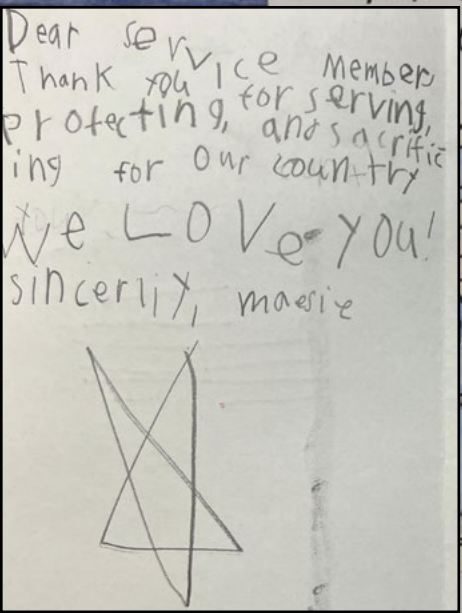 Dear service Member,
Thank you for serving,
protecting, and sacrific
ing for our country
We LOVe you!
sincerliy, maesie